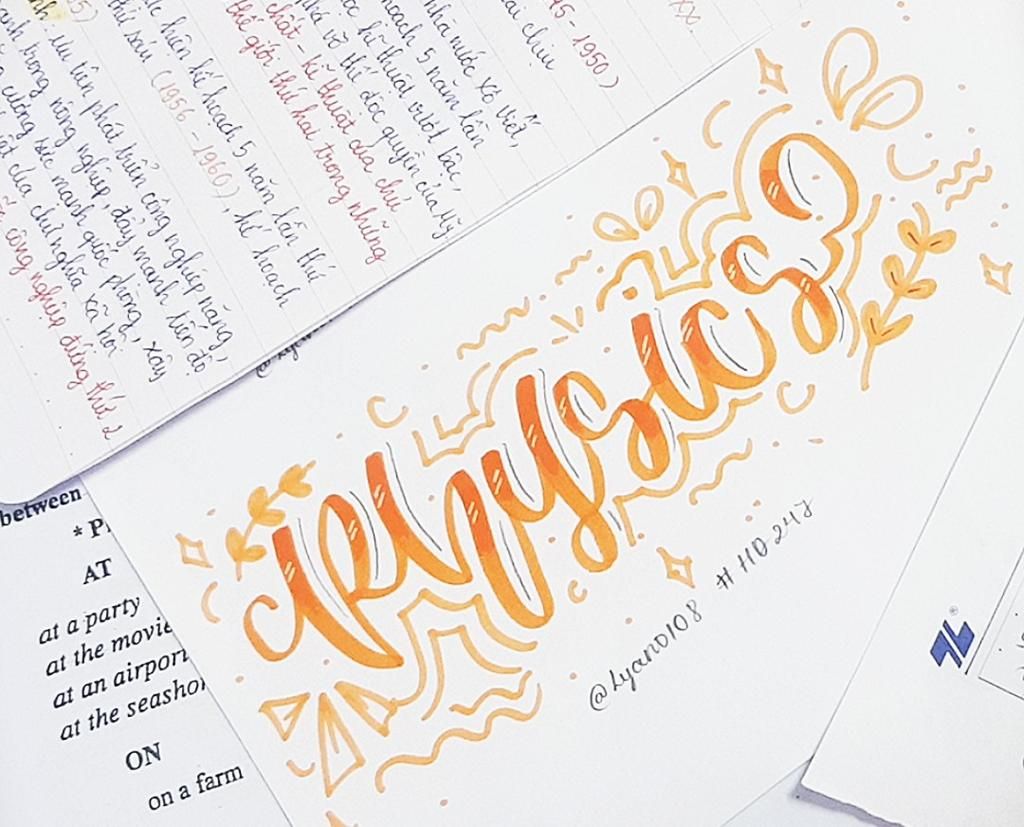 XX
45 - 1950)
ai chịu
nhà nước Xô viết,
hoạch 5 năm lần
kĩ thuật vượt bậc,
vỡ thế độc quyền của Mỹ
chất - kĩ thuật của chủ
thế giới thứ hai trong những
hiện kế hoạch 5 năm lần thứ
thứ sáu (1956 - 1960), kế hoạch
ưu tiên phát triển công nghiệp nặng,
trong nông nghiệp, đẩy mạnh tiến độ
cường sức mạnh quốc phòng, xây
của chủ nghĩa xã hội
công nghiệp đứng thứ 2
Physics
@Lyano108 #HD247
between
* P
AT
at a party
at the movie
at an airport
at the seashor
ON
on a farm